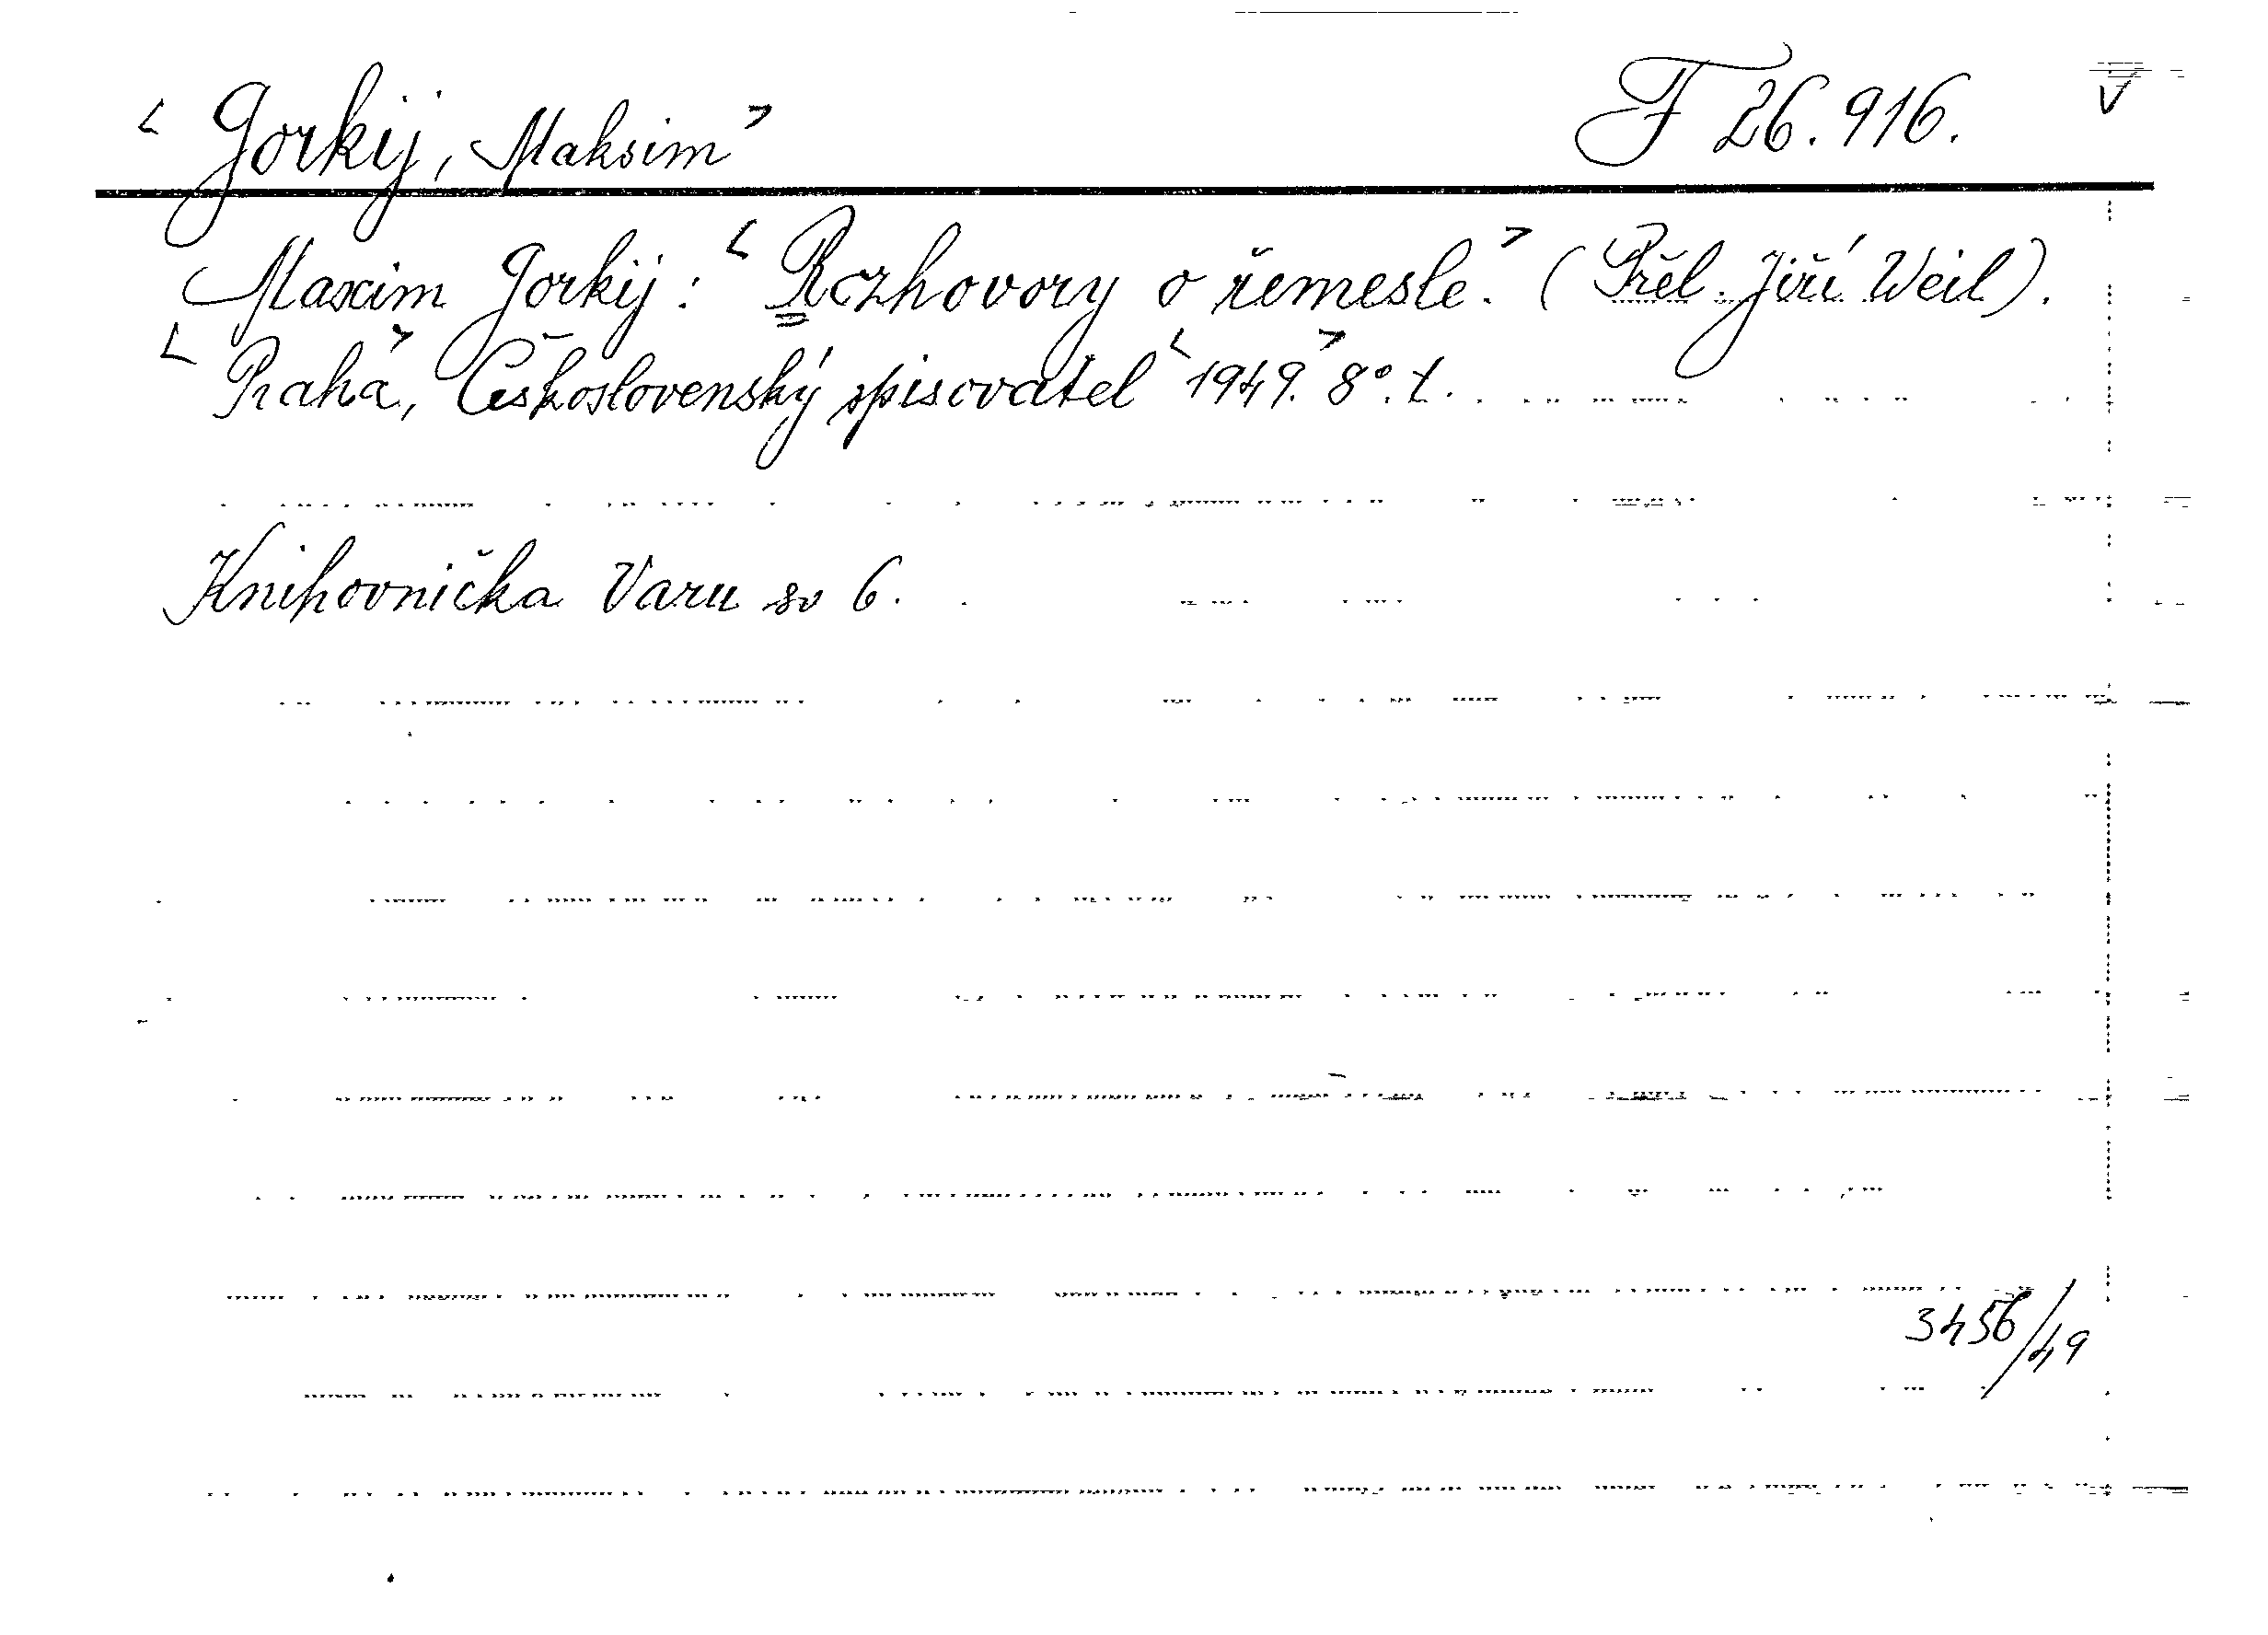 < Gorkij, Maksim > F 26.916. V
Maxim Gorkij: < Rozhovory o řemesle. > (Přel. Jiří Weil).
< Praha, > Československý spisovatel < 1949. > 8°. t.
Knihovnička Varu sv 6.
3456/49